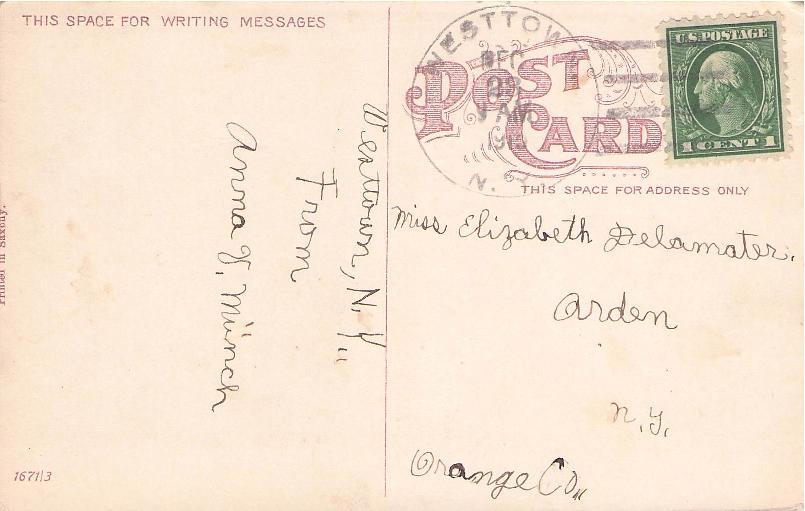 THIS SPACE FOR WRITING MESSAGES
POST CARD
WESTTOWN
DEC
AM
N.Y.
U.S. POSTAGE
1 CENT 1
THIS SPACE FOR ADDRESS ONLY
Westtown, N.Y.,,
From
Anna V. Münch
Miss Elizabeth Delamater.
Arden
N.Y.
Orange Co.,,
Printed in Saxony.
1671/3